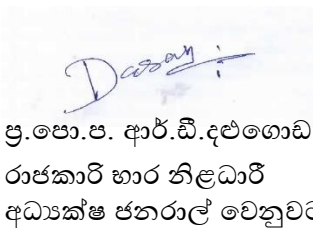 ප්‍ර.පො.ප. ආර්.ඩී.දළුගොඩ
රාජකාරි භාර නිළධාරී
අධ්‍යක්ෂ ජනරාල් වෙනුවට